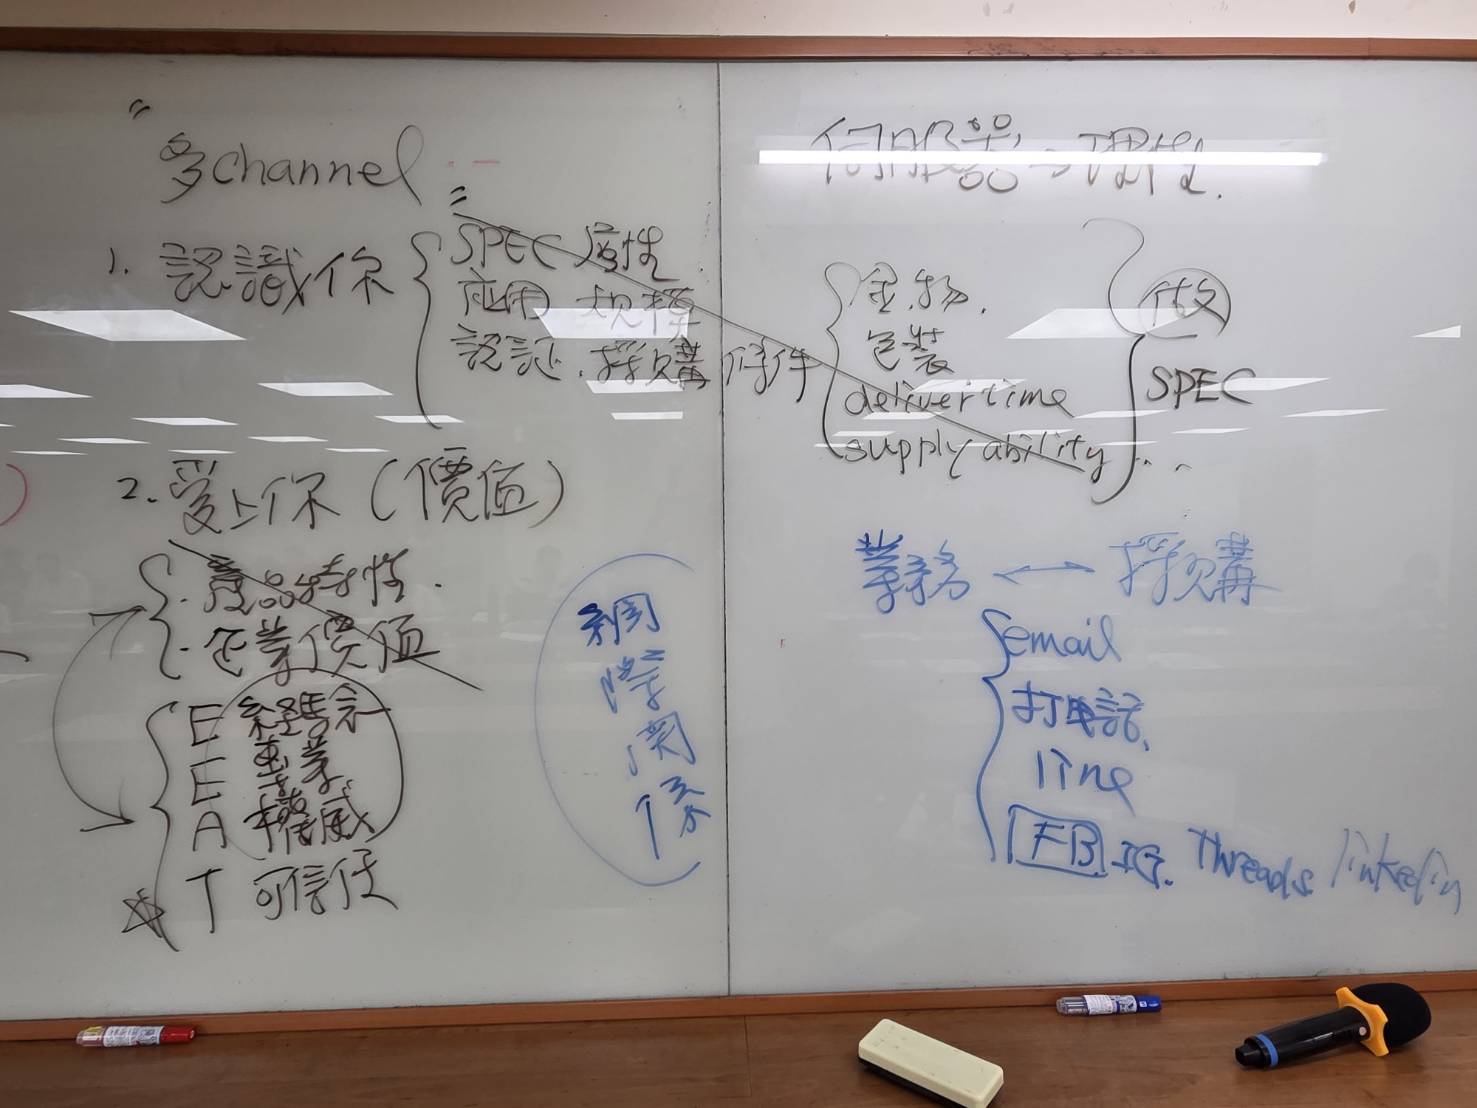 "多channel"
1. 認識你
SPEC 屬性.
應用 規模
認証. 採購條件
金.物.
包裝
deliver time
supply ability...
SPEC
伺服器→理性.
2. 愛上你（價值）
· 產品特性.
· 企業價值
E 經驗
E 專業
A 權威
T 可信任
網際關係
業務 ↔ 採購
email
打電話.
line
FB. IG. Threads linkedin